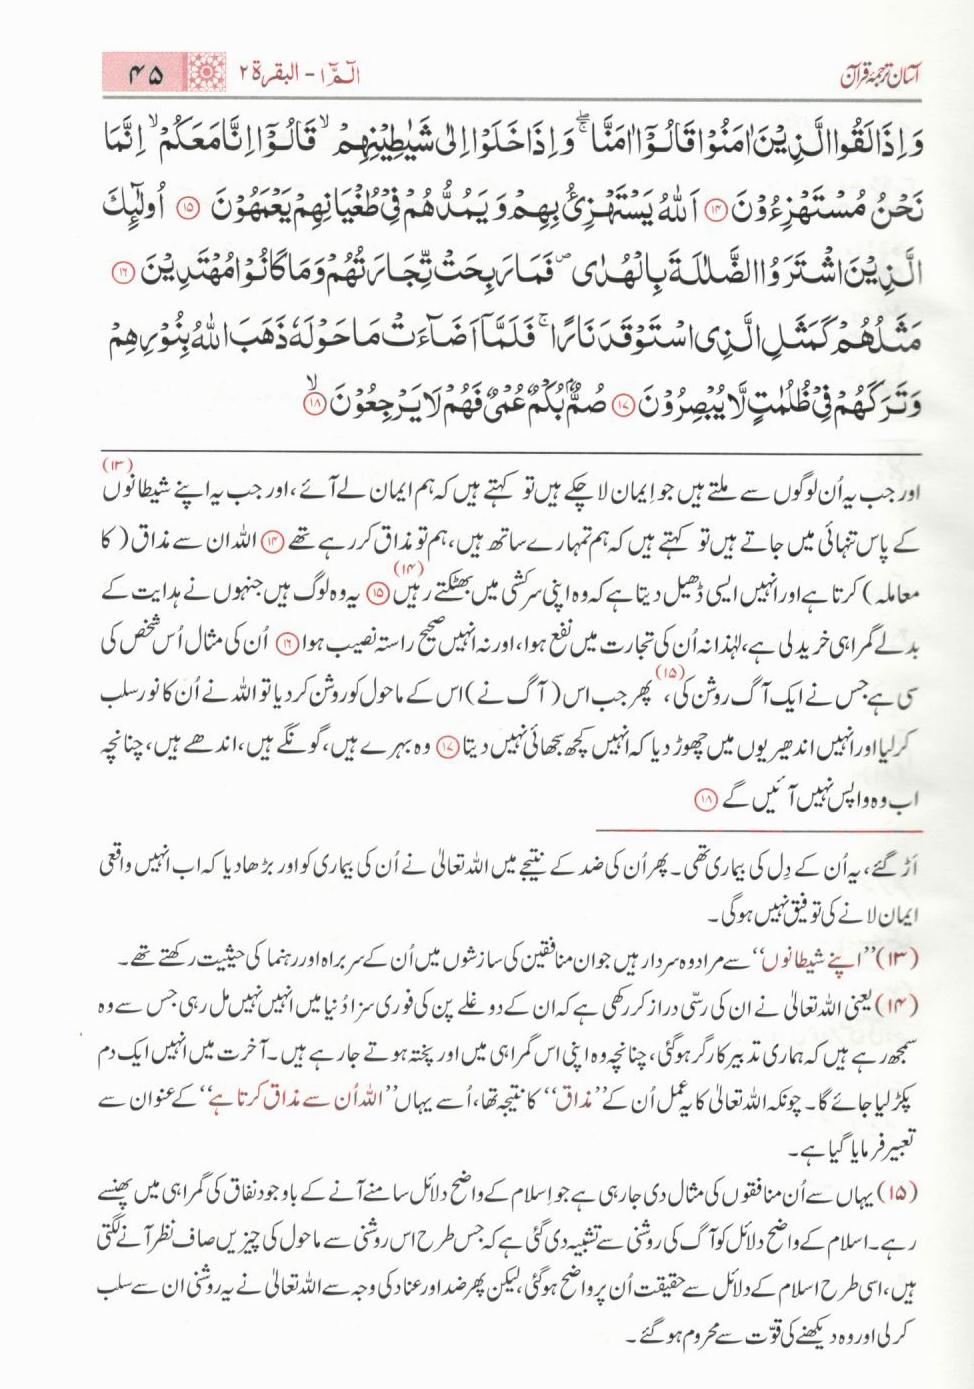 آسان ترجمۂ قرآن
الٓمّٓ ۱ - البقرة ۲
۴۵
وَاِذَا لَقُوا الَّذِيْنَ اٰمَنُوْا قَالُوْٓا اٰمَنَّا ۖۚ وَاِذَا خَلَوْا اِلٰى شَيٰطِيْنِهِمْ ۙ قَالُوْٓا اِنَّا مَعَكُمْ ۙ اِنَّمَا
نَحْنُ مُسْتَهْزِءُوْنَ ﴿۱۴﴾ اَللّٰهُ يَسْتَهْزِئُ بِهِمْ وَيَمُدُّهُمْ فِيْ طُغْيَانِهِمْ يَعْمَهُوْنَ ﴿۱۵﴾ اُولٰٓئِكَ
الَّذِيْنَ اشْتَرَوُا الضَّلٰلَةَ بِالْهُدٰى ۖ فَمَا رَبِحَتْ تِّجَارَتُهُمْ وَمَا كَانُوْا مُهْتَدِيْنَ ﴿۱۶﴾
مَثَلُهُمْ كَمَثَلِ الَّذِى اسْتَوْقَدَ نَارًا ۚ فَلَمَّآ اَضَآءَتْ مَا حَوْلَهٗ ذَهَبَ اللّٰهُ بِنُوْرِهِمْ
وَتَرَكَهُمْ فِيْ ظُلُمٰتٍ لَّا يُبْصِرُوْنَ ﴿۱۷﴾ صُمٌّۢ بُكْمٌ عُمْىٌ فَهُمْ لَا يَرْجِعُوْنَ ۙ﴿۱۸﴾
اور جب یہ اُن لوگوں سے ملتے ہیں جو اِیمان لاچکے ہیں تو کہتے ہیں کہ ہم ایمان لے آئے، اور جب یہ اپنے شیطانوں (۱۳)
کے پاس تنہائی میں جاتے ہیں تو کہتے ہیں کہ ہم تمہارے ساتھ ہیں، ہم تو مذاق کررہے تھے ﴿۱۴﴾ اللہ ان سے مذاق ( کا
معاملہ) کرتا ہے اور انہیں ایسی ڈھیل دیتا ہے کہ وہ اپنی سرکشی میں بھٹکتے رہیں (۱۴) ﴿۱۵﴾ یہ وہ لوگ ہیں جنہوں نے ہدایت کے
بدلے گمراہی خرید لی ہے، لہٰذا نہ اُن کی تجارت میں نفع ہوا، اور نہ انہیں صحیح راستہ نصیب ہوا ﴿۱۶﴾ اُن کی مثال اُس شخص کی
سی ہے جس نے ایک آگ روشن کی (۱۵)، پھر جب اس ( آگ نے ) اس کے ماحول کو روشن کردیا تو اللہ نے اُن کا نور سلب
کرلیا اور انہیں اندھیریوں میں چھوڑ دیا کہ انہیں کچھ سجھائی نہیں دیتا ﴿۱۷﴾ وہ بہرے ہیں، گونگے ہیں، اندھے ہیں، چنانچہ
اب وہ واپس نہیں آئیں گے ﴿۱۸﴾
اَڑ گئے، یہ اُن کے دِل کی بیماری تھی۔ پھر اُن کی ضد کے نتیجے میں اللہ تعالیٰ نے اُن کی بیماری کو اور بڑھا دیا کہ اب انہیں واقعی
ایمان لانے کی توفیق نہیں ہوگی۔
(۱۳) ’’اپنے شیطانوں‘‘ سے مراد وہ سردار ہیں جو ان منافقین کی سازشوں میں اُن کے سربراہ اور رہنما کی حیثیت رکھتے تھے۔
(۱۴) یعنی اللہ تعالیٰ نے ان کی رسّی دراز کررکھی ہے کہ ان کے دوغلے پن کی فوری سزا دُنیا میں انہیں نہیں مل رہی جس سے وہ
سمجھ رہے ہیں کہ ہماری تدبیر کارگر ہوگئی، چنانچہ وہ اپنی اس گمراہی میں اور پختہ ہوتے جارہے ہیں۔ آخرت میں انہیں ایک دم
پکڑ لیا جائے گا۔ چونکہ اللہ تعالیٰ کا یہ عمل اُن کے ’’مذاق‘‘ کا نتیجہ تھا، اُسے یہاں ’’اللہ اُن سے مذاق کرتا ہے‘‘ کے عنوان سے
تعبیر فرمایا گیا ہے۔
(۱۵) یہاں سے اُن منافقوں کی مثال دی جارہی ہے جو اِسلام کے واضح دلائل سامنے آنے کے باوجود نفاق کی گمراہی میں پھنسے
رہے۔ اسلام کے واضح دلائل کو آگ کی روشنی سے تشبیہ دی گئی ہے کہ جس طرح اس روشنی سے ماحول کی چیزیں صاف نظر آنے لگتی
ہیں، اسی طرح اسلام کے دلائل سے حقیقت اُن پر واضح ہوگئی، لیکن پھر ضد اور عناد کی وجہ سے اللہ تعالیٰ نے یہ روشنی ان سے سلب
کرلی اور وہ دیکھنے کی قوّت سے محروم ہوگئے۔